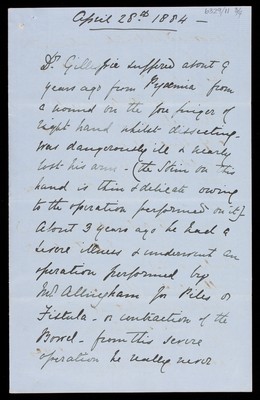 April 28.th 1884 —
Dr. Gillespie suffered about 9
years ago from Pyaemia from
a wound on the fore finger of
right hand whilst dissecting -
was dangerously ill & nearly
lost his arm - (the skin on this
hand is thin & delicate owing
to the operation performed on it).
About 3 years ago he had a
severe illness & underwent an
operation performed by
Mr. Allingham for Piles or
Fistula - or contraction of the
Bowel - from this severe
operation he really never